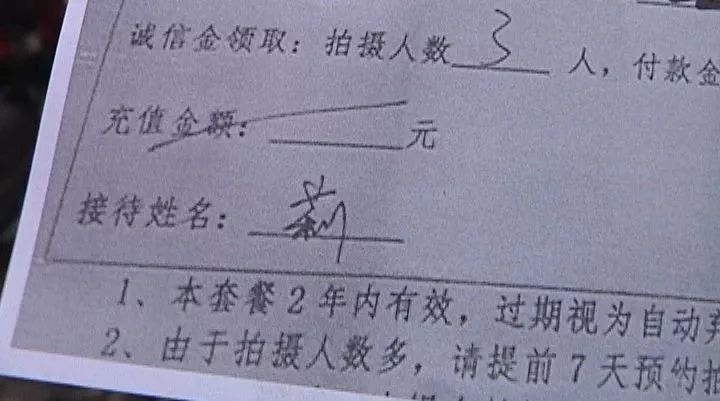 诚信金领取：拍摄人数 3 人，付款金
充值金额：元
接待姓名：莉
1、本套餐2年内有效，过期视为自动弃
2、由于拍摄人数多，请提前7天预约拍